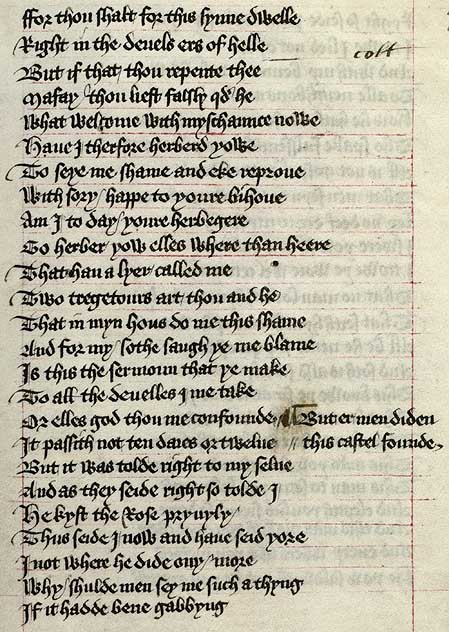 ffor thou shalt for this synne dwelle
Right in the deuels ers of helle
colt
But if that thou repente thee
Mafay thou liest falsly qd he
What welcome with myschaunce nowe
Haue I therfore herberd yowe
To seye me shame and eke reproue
With sory happe to youre bihoue
Am I to day youre herbegere
Go herber yow elles where than heere
That han a lyer called me
Two tregetours art thou and he
That in myn hous do me this shame
And for my sothe saugh ye me blame
Is this the sermoun that ye make
To all the deuelles I me take
Or elles god thou me confounde // But er men diden
It passith not ten daies or twelue // this castel founde
But it was tolde right to my selue
And as they seide right so tolde I
He kyst the Rose pryuyly
Thus seide I now and haue seid yore
I not where he dide ony more
Why shulde men sey me such a thyng
If it hadde bene gabbyng